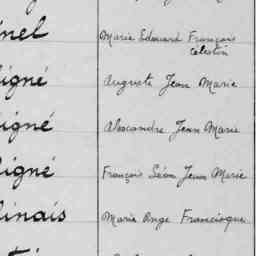 nel Marie Edouard François
Célestin
igné Auguste Jean Marie
igné Alexandre Jean Marie
igné François Léon Jean Marie
linais Marie Ange Francisque